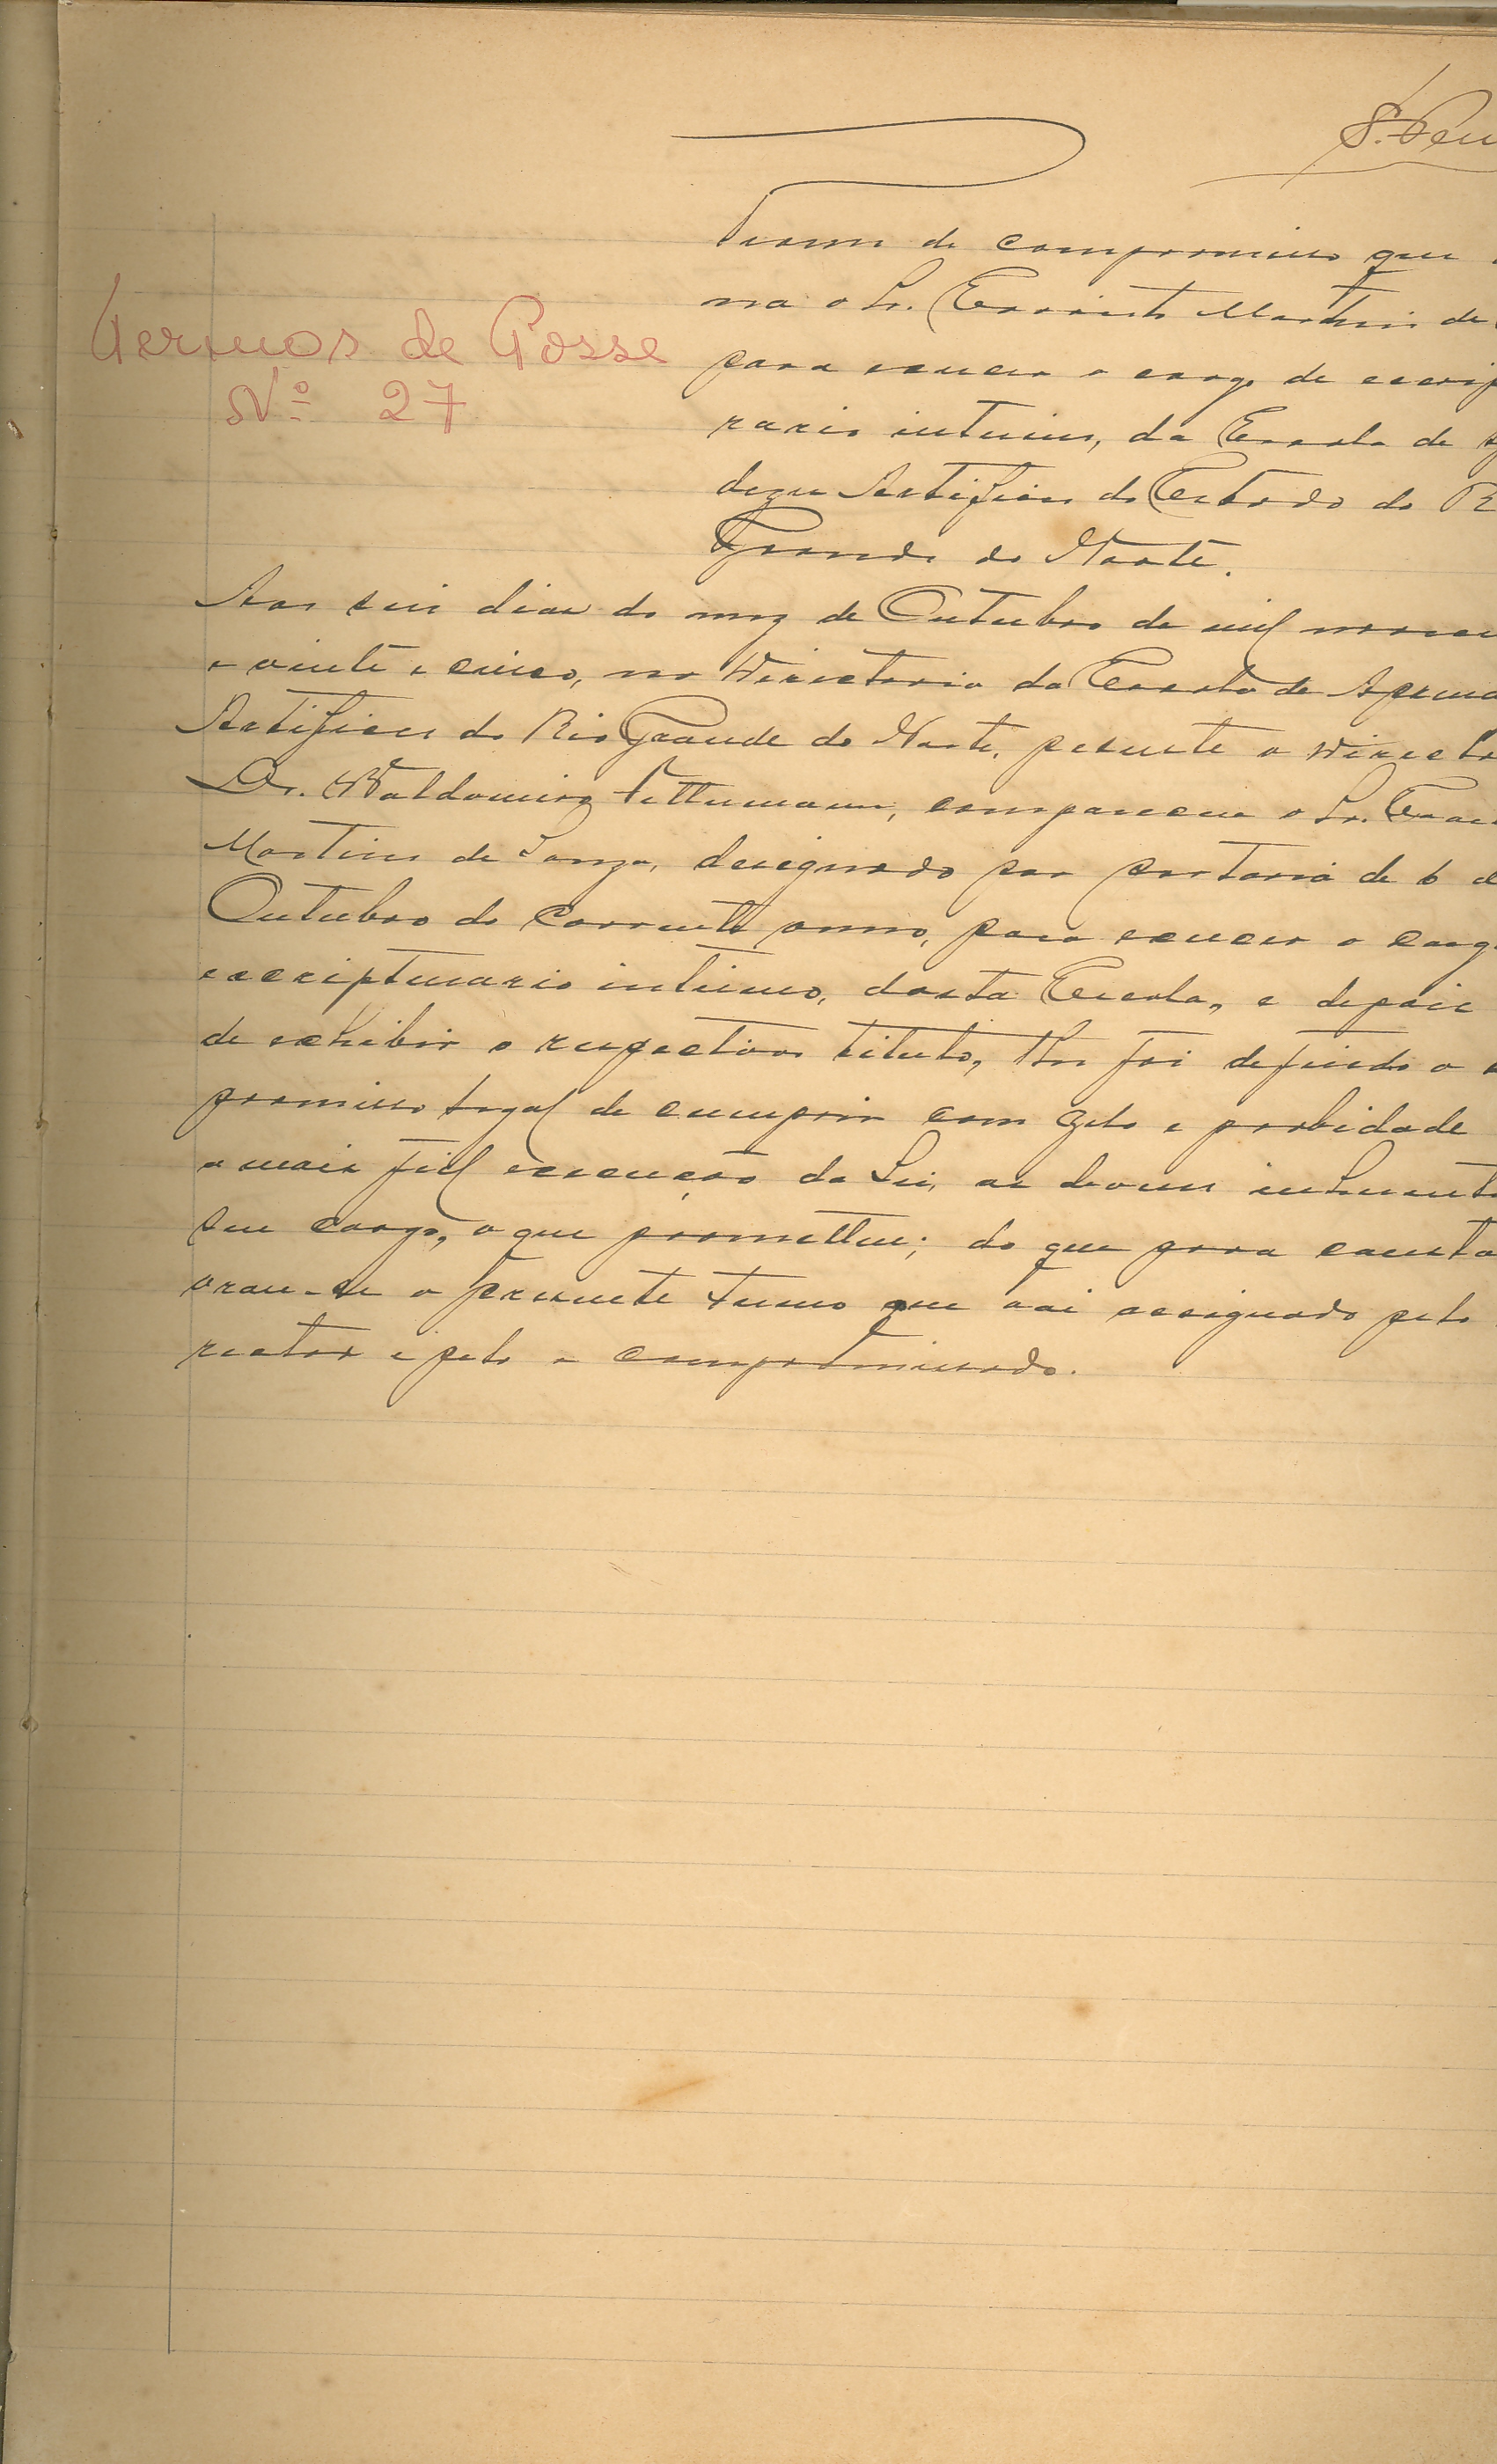 Termos de Posse
Nº 27
Termo de compromisso que
na o Sr. Evaristo Martins de
para exercer o cargo de escrip
rario interino, da Escola de
dizes Artifices do Estado do R
Grande do Norte.
Aos seis dias do mez de Outubro de mil novecen
e vinte e cinco, na Directoria da Escola de Aprend
Artifices do Rio Grande do Norte, perante o Directo
Dr. Waldomiro Fettermann, compareceu o Sr. Evari
Martins de Souza, designado por portaria de 6 d
Outubro do corrente anno, para exercer o cargo
escripturario interino, desta Escola, e depois
de exhibir o respectivo titulo, lhe foi deferido o
promisso legal de cumprir com zelo e probidade
a mais fiel execução da Lei, os deveres inherente
seu cargo, o que prometteu; do que para consta
vrou-se o presente termo que vai assignado pelo
rector e pelo o compromissado.